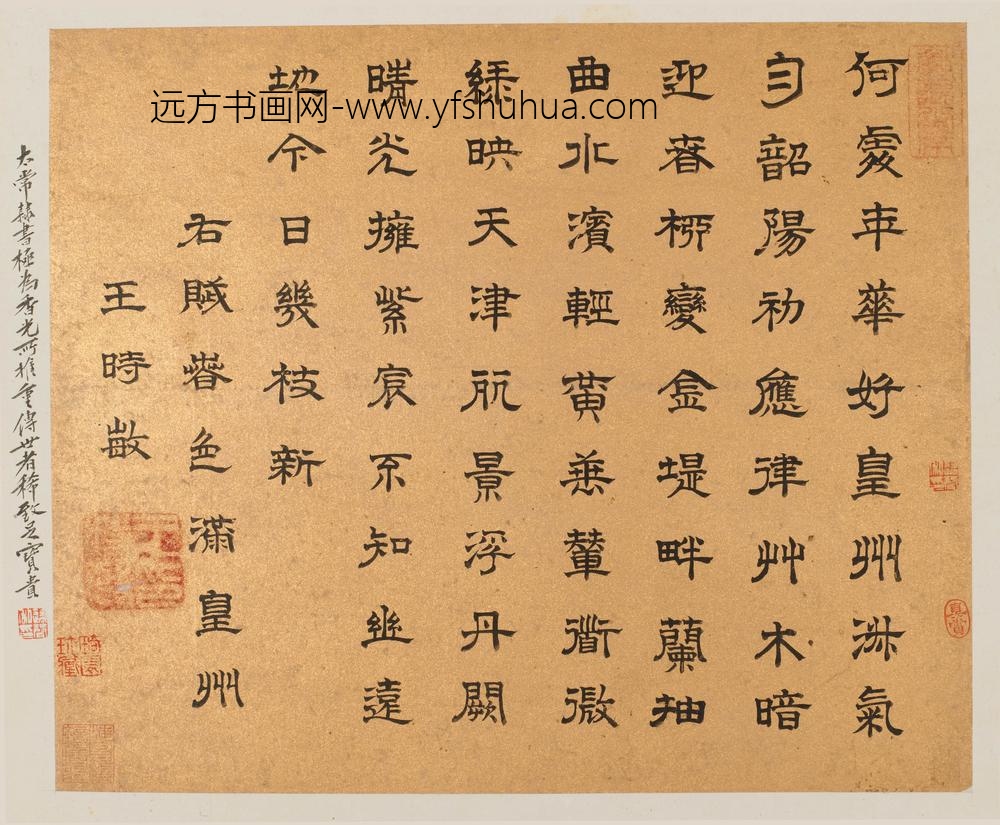 何處年華好皇州淑氣
勻韶陽初應律艸木暗
迎春柳變金堤畔蘭抽
曲水濱輕黃垂輦衟微
綠映天津丽景浮丹闕
晴光擁紫宸不知幽遠
地今日幾枝新
右賦春色滿皇州
王時敏
太常隸書極為香光所推重傳世者稀致足寶貴
真賞
远方书画网-www.yfshuhua.com